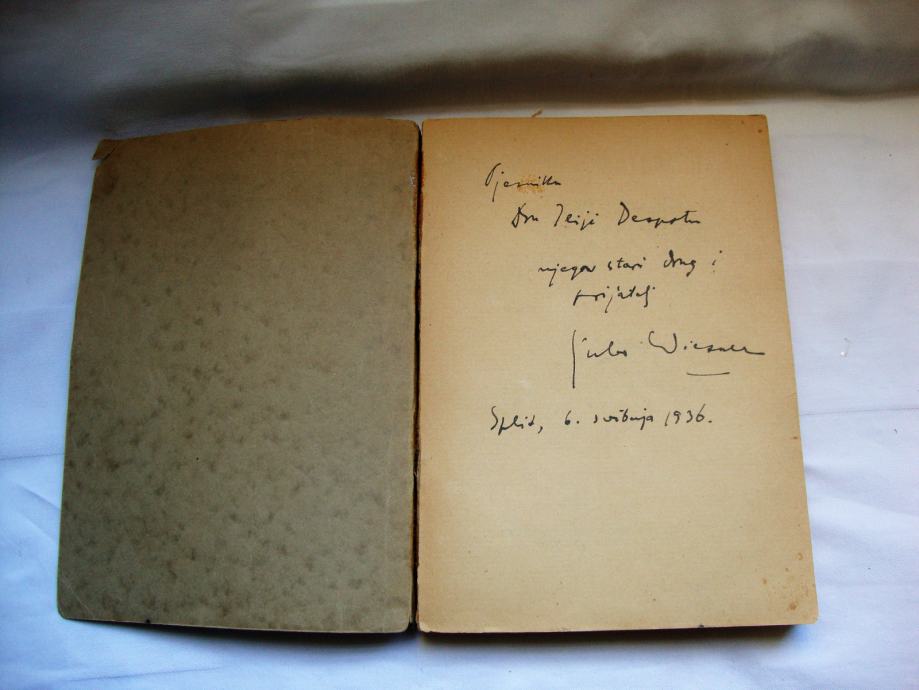 Pjesniku
Don Iliji Despotu
njegov stari drug i
prijatelj
Ljubo Wiesner
Split, 6. svibnja 1936.